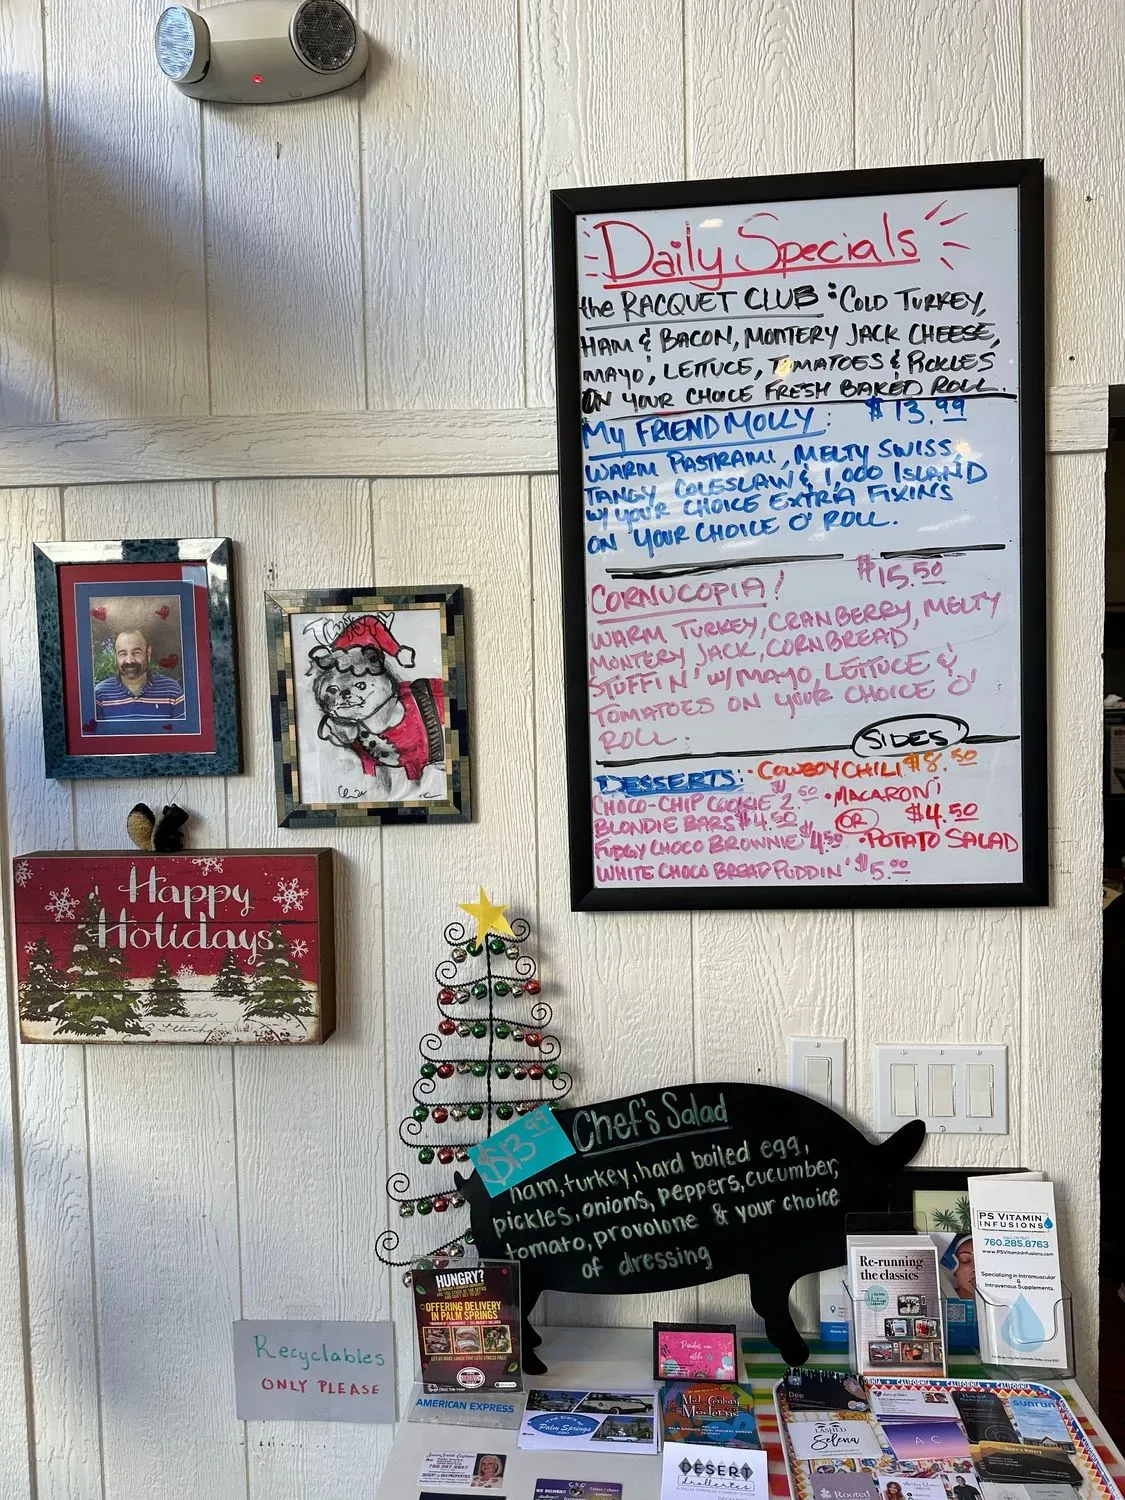 Daily Specials
the RACQUET CLUB: COLD TURKEY,
HAM & BACON, MONTERY JACK CHEESE,
MAYO, LETTUCE, TOMATOES & PICKLES
ON YOUR CHOICE FRESH BAKED ROLL.
$13.99
MY FRIEND MOLLY:
WARM PASTRAMI, MELTY SWISS,
TANGY COLESLAW & 1,000 ISLAND
W/ YOUR CHOICE EXTRA FIXINS
ON YOUR CHOICE O' ROLL.
$15.50
CORNUCOPIA!
WARM TURKEY, CRANBERRY, MELTY
MONTERY JACK, CORNBREAD
STUFFIN' W/MAYO, LETTUCE &
TOMATOES ON YOUR CHOICE O'
ROLL.
SIDES
DESSERTS:
• COWBOY CHILI $8.50
CHOCO-CHIP COOKIE 2.50
• MACARONI
BLONDIE BARS $4.50
OR
$4.50
FUDGY CHOCO BROWNIE $4.50
• POTATO SALAD
WHITE CHOCO BREAD PUDDIN' $5.00
Happy
Holidays
$13.99
Chef's Salad
ham, turkey, hard boiled egg,
pickles, onions, peppers, cucumber,
tomato, provolone & your choice
of dressing
Recyclables
ONLY PLEASE
HUNGRY?
OFFERING DELIVERY
IN PALM SPRINGS
AMERICAN EXPRESS
Re-running
the classics
PS VITAMIN
INFUSIONS
CALL OR TEXT
760.285.8763
www.PSVitaminInfusions.com
Specializing in Intramuscular &
Intravenous Supplements
CALIFORNIA
CALIFORNIA
Palm Springs
Mid Century
Moderns
DESERT
drollertes
A PALM SPRINGS COMEDY SHOW
Dee
LASHED
Selena
A.C
sunrun
Rooted
WE DELIVER!
760.567.8667